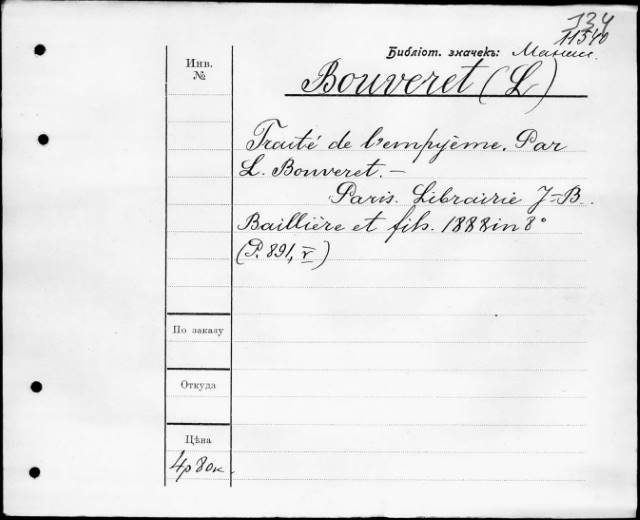 134
11540
Библіот. значекъ:
Инв.
№
Bouveret (L)
Traité de l'empyème. Par
L. Bouveret. —
Paris. Librairie J-B.
Baillière et fils. 1888 in 8°
(P. 891, v)
По заказу
Откуда
Цѣна
4р 80к.